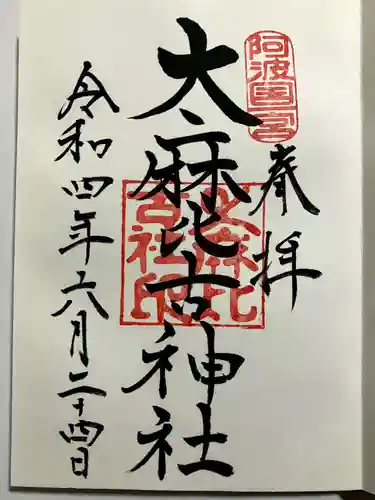 阿波國一宮
奉拝
大麻比古神社
大麻比古社印
令和四年六月二十四日